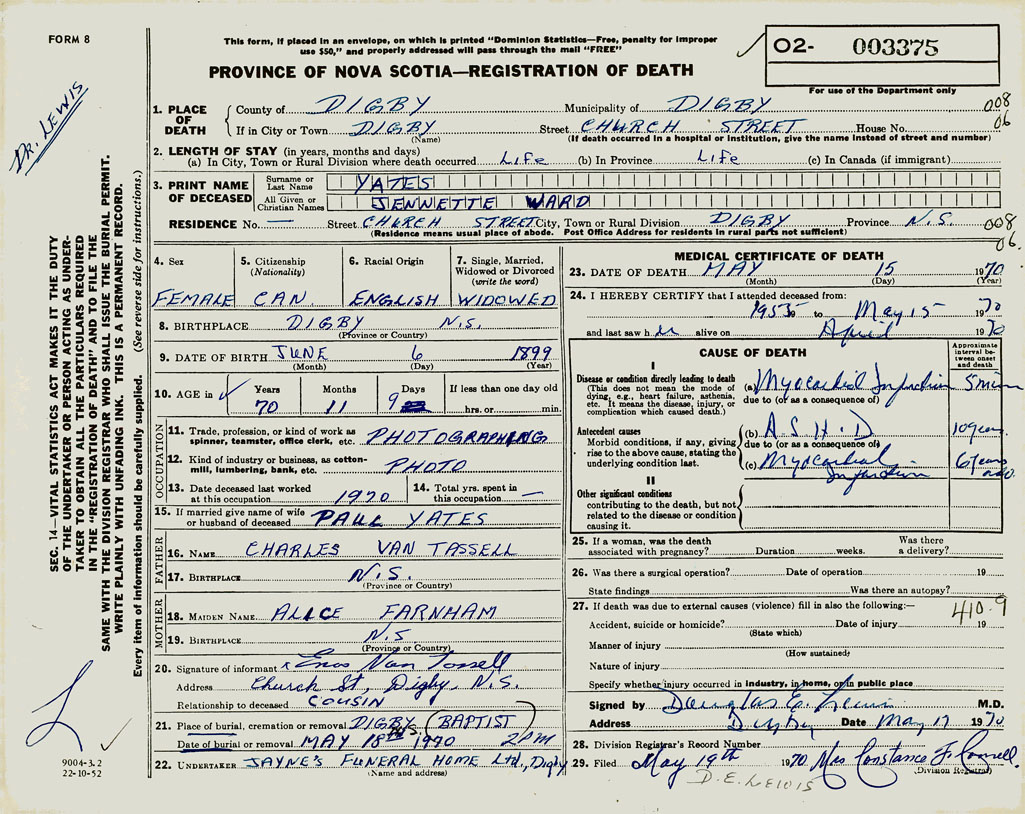 FORM 8
This form, if placed in an envelope, on which is printed "Dominion Statistics—Free, penalty for improper
use $50," and properly addressed will pass through the mail "FREE"
PROVINCE OF NOVA SCOTIA—REGISTRATION OF DEATH
02- 003375
For use of the Department only
DR. LEWIS
SEC. 14—VITAL STATISTICS ACT MAKES IT THE DUTY
OF THE UNDERTAKER OR PERSON ACTING AS UNDER-
TAKER TO OBTAIN ALL THE PARTICULARS REQUIRED
IN THE "REGISTRATION OF DEATH" AND TO FILE THE
SAME WITH THE DIVISION REGISTRAR WHO SHALL ISSUE THE BURIAL PERMIT.
WRITE PLAINLY WITH UNFADING INK. THIS IS A PERMANENT RECORD.
Every item of information should be carefully supplied. (See reverse side for instructions.)
9004-3.2
22-10-52
1. PLACE OF DEATH
County of DIGBY Municipality of DIGBY 008
If in City or Town DIGBY Street CHURCH STREET House No. 06
(Name) (If death occurred in a hospital or institution, give the name instead of street and number)
2. LENGTH OF STAY (in years, months and days)
(a) In City, Town or Rural Division where death occurred Life (b) In Province Life (c) In Canada (if immigrant)
3. PRINT NAME OF DECEASED
Surname or Last Name YATES
All Given or Christian Names JENNETTE WARD
RESIDENCE No. — Street CHURCH STREET City, Town or Rural Division DIGBY Province N.S. 008
(Residence means usual place of abode. Post Office Address for residents in rural parts not sufficient) 06.
4. Sex FEMALE
5. Citizenship (Nationality) CAN.
6. Racial Origin ENGLISH
7. Single, Married, Widowed or Divorced (write the word) WIDOWED
8. BIRTHPLACE DIGBY N.S.
(Province or Country)
9. DATE OF BIRTH JUNE 6 1899
(Month) (Day) (Year)
10. AGE in Years 70 Months 11 Days 9 If less than one day old hrs. or min.
OCCUPATION
11. Trade, profession, or kind of work as spinner, teamster, office clerk, etc. PHOTOGRAPHING
12. Kind of industry or business, as cotton-mill, lumbering, bank, etc. PHOTO
13. Date deceased last worked at this occupation 1970
14. Total yrs. spent in this occupation —
15. If married give name of wife or husband of deceased PAUL YATES
FATHER
16. NAME CHARLES VAN TASSELL
17. BIRTHPLACE N.S.
(Province or Country)
MOTHER
18. MAIDEN NAME ALICE FARNHAM
19. BIRTHPLACE N.S
(Province or Country)
20. Signature of informant x Enos Van Tassell
Address Church St, Digby, N.S.
Relationship to deceased COUSIN
21. Place of burial, cremation or removal DIGBY (BAPTIST)
Date of burial or removal MAY 18th 1970 2PM
22. UNDERTAKER JAYNE'S FUNERAL HOME Ltd., Digby
(Name and address)
MEDICAL CERTIFICATE OF DEATH
23. DATE OF DEATH MAY 15 1970
(Month) (Day) (Year)
24. I HEREBY CERTIFY that I attended deceased from:
to May 15 1970
and last saw h er alive on April 1970
CAUSE OF DEATH
Approximate interval between onset and death
I
Disease or condition directly leading to death
(This does not mean the mode of dying, e.g., heart failure, asthenia, etc. It means the disease, injury, or complication which caused death.)
(a) Myocardial Infarction 5 min
due to (or as a consequence of)
Antecedent causes
Morbid conditions, if any, giving rise to the above cause, stating the underlying condition last.
(b) A.S.H.D 10 years
due to (or as a consequence of)
(c) Myocardial Infarction 6 years ago.
II
Other significant conditions
contributing to the death, but not related to the disease or condition causing it.
25. If a woman, was the death associated with pregnancy? Duration weeks. Was there a delivery?
26. Was there a surgical operation? Date of operation 19
State findings Was there an autopsy?
27. If death was due to external causes (violence) fill in also the following:— 410.9
Accident, suicide or homicide? Date of injury 19
(State which)
Manner of injury
(How sustained)
Nature of injury
Specify whether injury occurred in industry, in home, or in public place
Signed by Douglas E. Lewis M.D.
Address Digby Date May 17 1970
28. Division Registrar's Record Number
29. Filed May 19th 1970 Mrs Constance F. Connell
(Division Registrar)
D.E. LEWIS